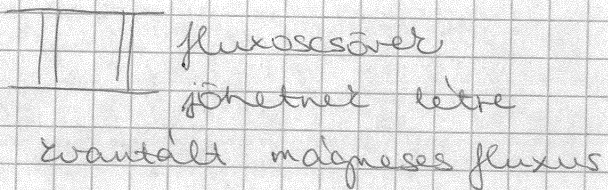 fluxoscsövek
jöhetnek létre
kvantált mágneses fluxus